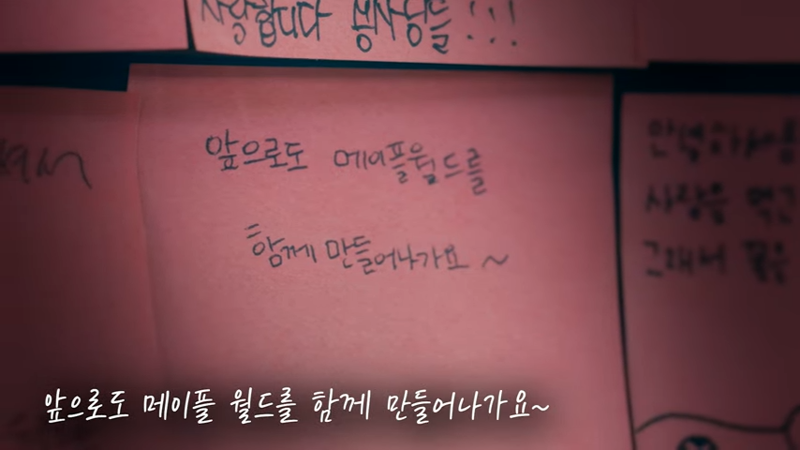 사랑합니다 용사님들!!!
앞으로도 메이플월드를
함께 만들어나가요~
사랑을 먹고
그래서 꿈은
앞으로도 메이플 월드를 함께 만들어나가요~